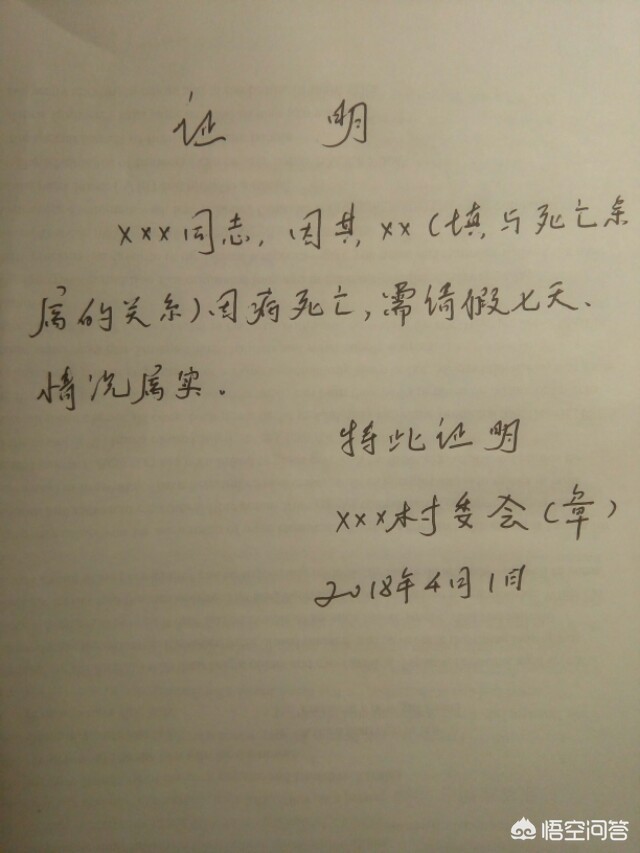 证 明
xxx同志，因其，xx（填与死亡亲
属的关系）因病死亡，需请假七天、
情况属实。
特此证明
xxx村委会（章）
2018年4月1日
悟空问答